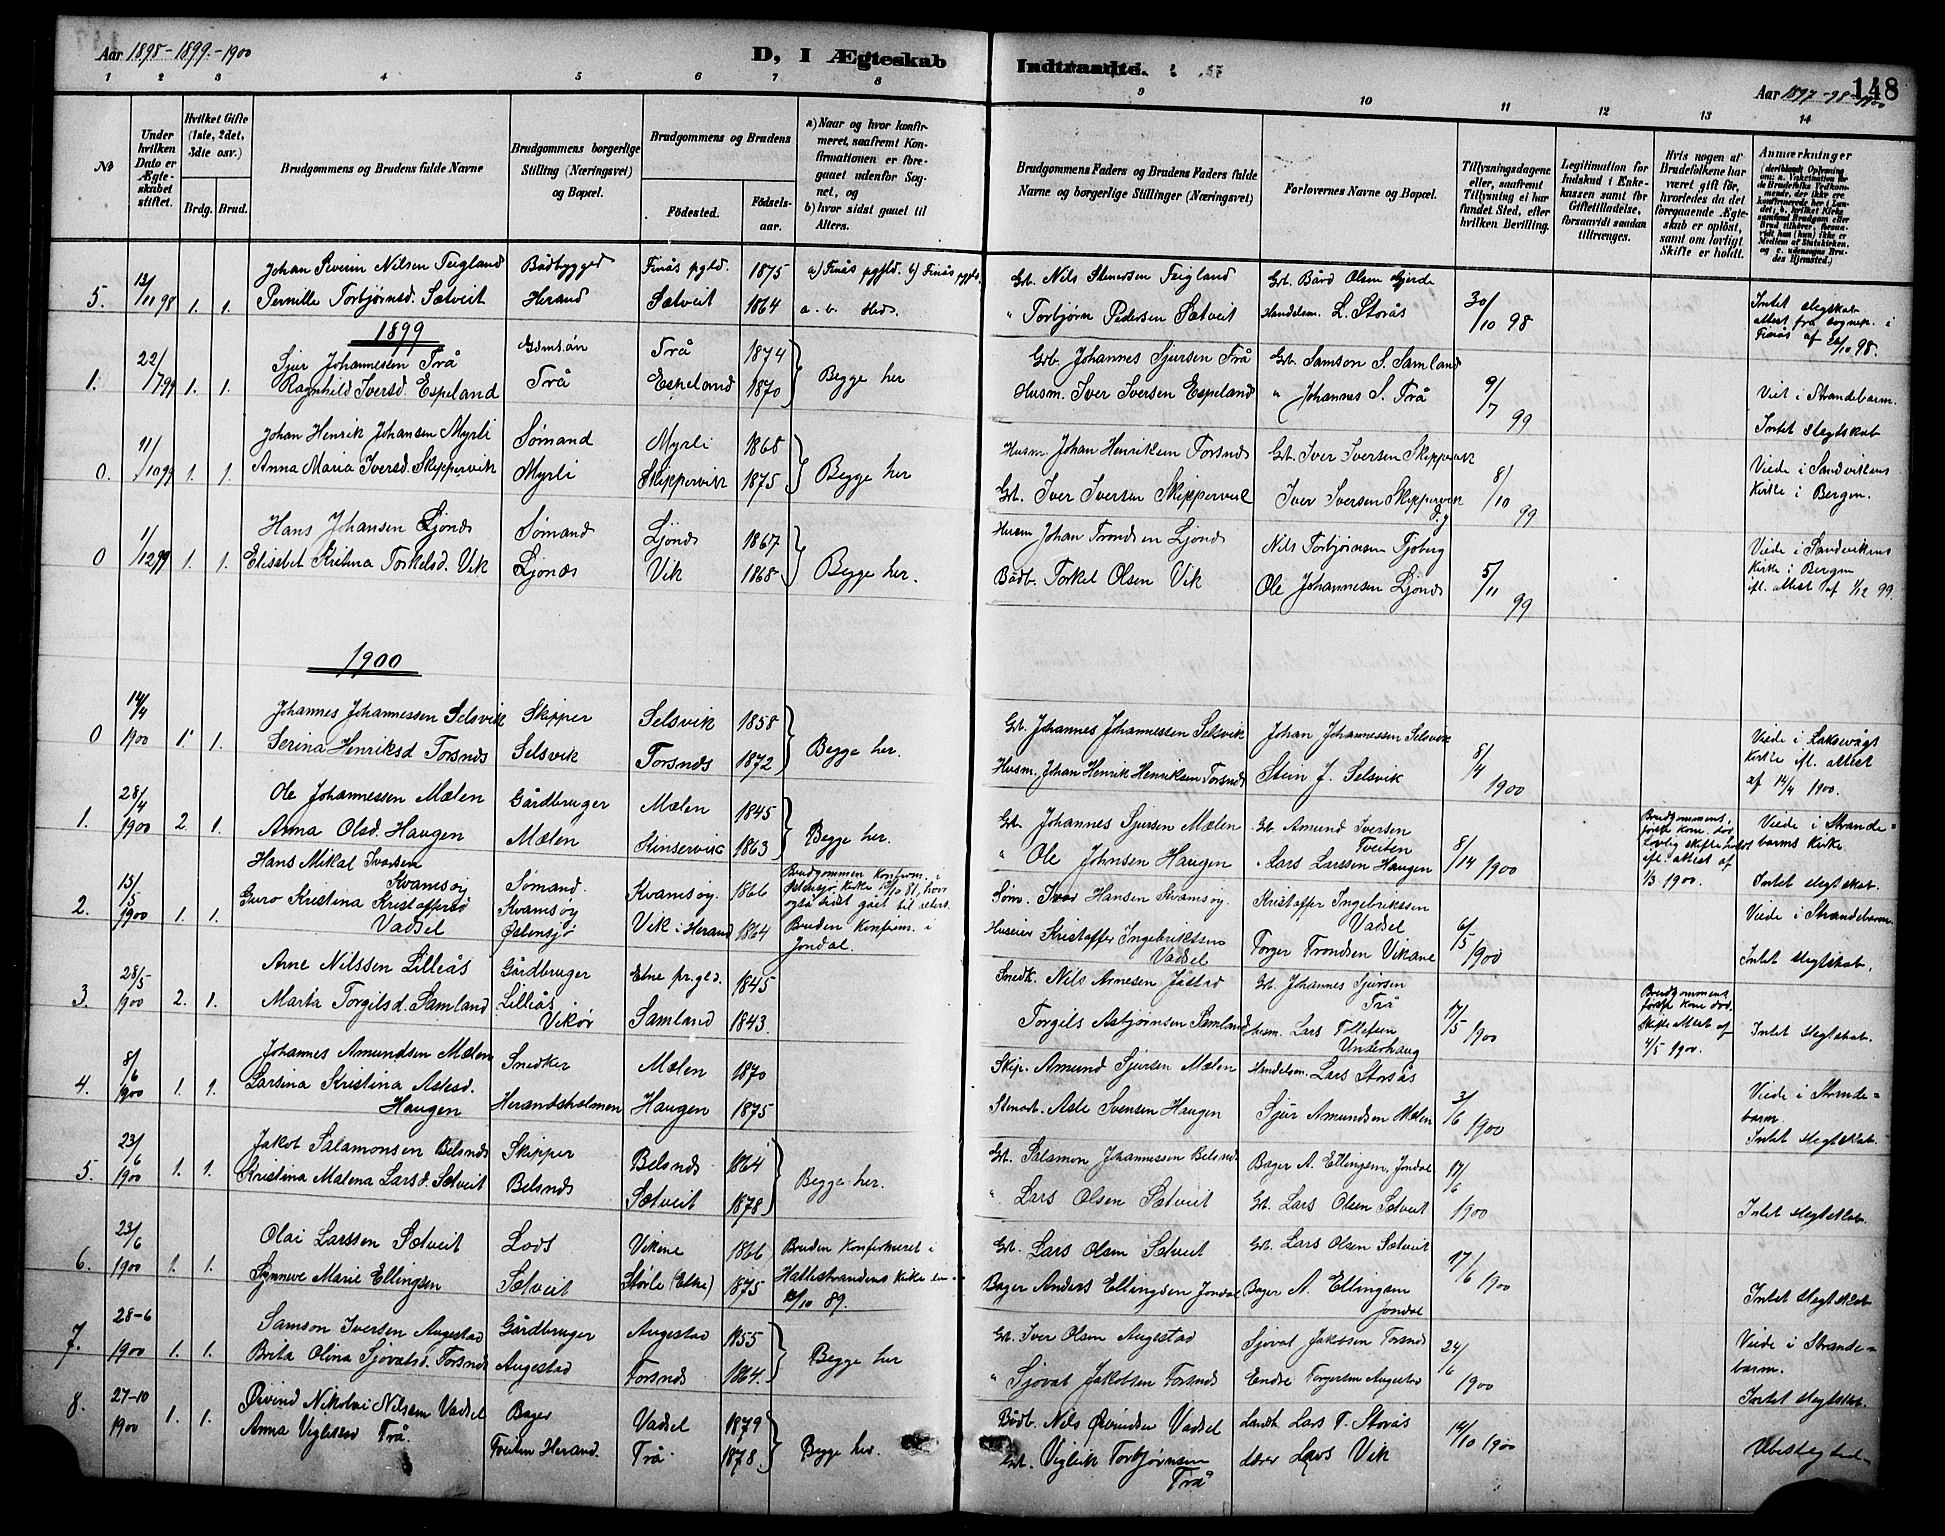 Aar 1898-1899.-1900
D, I Ægteskab Indtraadte.
Aar 1897-98-1900
148
1 2 3 4 5 6 7 8 9 10 11 12 13 14
№
Under hvilken Dato er Ægteskabet stiftet.
Hvilket Gifte (1ste, 2det, 3die osv.)
Brdg. Brud.
Brudgommens og Brudens fulde Navne
Brudgommens borgerlige Stilling (Næringsvei) og Bopæl.
Brudgommens og Brudens
Fødested. Fødselsaar.
a) Naar og hvor konfirmeret, saafremt Konfirmationen er foregaaet udenfor Sognet, og
b) hvor sidst gaaet til Alters.
Brudgommens Faders og Brudens Faders fulde Navne og borgerlige Stillinger (Næringsvei)
Forlovernes Navne og Bopæl.
Tillysningsdagene eller, saafremt Tillysning ei har fundet Sted, efter hvilken Bevilling.
Legitimation for Indskud i Enkekassen samt for Giftetilladelse, forsaavidt saadan tiltrænges.
Hvis nogen af Brudefolkene har været gift før, hvorledes da det foregaaende Ægteskab er opløst, samt om lovligt Skifte er holdt.
Anmærkninger
5. 13/11 98 1. 1. Johan Severin Nilsen Teigland Bådbygger Finås pgld. 1875 a) Finås pgld. b) Finås pgld. Gbr. Nils Stenersen Teigland Gbr. Bård Olsen Gjerde 30/10 98 Intet slegtskab
Pernille Torbjørnsd. Sætveit Herand Sætveit 1864 a. b. Heds. " Torbjørn Pedersen Sætveit Handelsm. L. Storås attest fra sognep. i Finås af 26/10 98.
1899
1. 22/7 99 1. 1. Sjur Johannessen Trå Trå 1874 Begge her Gbr. Johannes Sjursen Trå Gbr. Samson S. Samland 9/7 99 Viet i Strandebarm.
Ragnhild Iversd. Espeland Trå Espeland 1870 Husm. Iver Iversen Espeland " Johannes S. Trå Intet slegtskab
0. 11/10 99 1. 1. Johan Henrik Johansen Myrli Sømand Myrli 1868 Begge her Husm. Johan Henriksen Torsnes Gbr. Iver Iversen Skippervik 8/10 99 Viede i Sandvikens
Anna Maria Iversd. Skippervik Myrli Skippervik 1875 Gbr. Iver Iversen Skippervik Iver Iversen Skippervik d.y. Kirke i Bergen.
0 1/12 99 1. 1. Hans Johansen Ljones Sømand Ljones 1867 Begge her. Husm Johan Trondsen Ljones Nils Torbjørnsen Tjoberg 5/11 99 Viede i Sandvikens
Elisabet Kristina Torkelsd. Vik Ljones Vik 1868 Bådb. Torkel Olsen Vik Ole Johannesen Ljones Kirke i Bergen ifl. attest af 1/12 99.
1900
0 14/4 1900 1. 1. Johannes Johannessen Selsvik Skipper Selsvik 1858 Begge her. Gbr. Johannes Johannessen Selsvik Johan Johannessen Selsvik 8/4 1900 Viede i Laksevågs
Serina Henriksd Torsnes Selsvik Torsnes 1872 Husm. Johan Henrik Henriksen Torsnes Stein J. Selsvik Kirke ifl. attest af 14/4 1900.
1. 28/4 1900 2. 1. Ole Johannessen Mælen Gårdbruger Mælen 1845 Begge her. Gbr. Johannes Sjursen Mælen Gbr. Amund Iversen Tveiten 8/14 1900 Brudgommens første kone død Lovlig skifte holdt ifl. attest af 1/3 1900. Viede i Strandebarms Kirke.
Anna Olsd. Haugen Mælen Kinservik 1863 " Ole Johnsen Haugen " Lars Larssen Haugen Intet slegtskab.
2. 15/5 1900 1. 1. Hans Mikal Ivarsen Kvamsøy Sømand. Kvamsøy. 1866 Brudgommen Konferm. i Østensjø Kirke /10 81, hvor også sidst gået til alters. Søm. Ivar Hansen Kvamsøy. Kristaffer Ingebriktsen Vadsel 6/5 1900 Viede i Strandebarm
Guro Kristina Kristaffersd Vadsel Kvamsøy Østensjø Vik i Herand 1864 Bruden Konferm. i Jondal. Huseier Kristaffer Ingebriktsen Vadsel Torger Trondsen Vikane Intet slegtskab.
3. 28/5 1900 2. 1. Arne Nilssen Lilleås Gårdbruger Etne pr.gld. 1845 Smedk. Nils Arnesen Jåstad Gbr. Johannes Sjursen Trå 17/5 1900 Brudgommens første kone død. Skifte Attest af 4/5 1900. Intet slegtskab.
Marta Torgilsd. Samland Lilleås Vikør Samland 1843. Torgils Asbjørnsen Samland husm. Lars Tollefsen Underhaug
4. 8/6 1900 1. 1. Johannes Amundsen Mælen Snedker Mælen 1870 Skip. Amund Sjursen Mælen Handelsm. Lars Storås 3/6 1900 Viede i Strandebarm
Larsina Kristina Aslesd. Haugen Herandsholmen Haugen 1875 Stenarb. Asle Svensen Haugen Sjur Amundsen Mælen Intet slegtskab.
5. 23/6 1900 1. 1. Jakob Salamonsen Belsnes Skipper Belsnes 1864 Begge her. Gbr. Salamon Johannessen Belsnes Bager A. Ellingsen, Jondal 17/6 1900
Kristina Malena Larsd. Sætveit Belsnes Sætveit 1878 " Lars Olsen Sætveit Gbr. Lars Olsen Sætveit Intet slegtskab.
6. 23/6 1900 1. 1. Olai Larssen Sætveit Lods Vikene 1866 Bruden Konfirmeret i Gbr. Lars Olsen Sætveit Gbr. Lars Olsen Sætveit 17/6 1900
Synneve Marie Ellingsen Sætveit Størle (Etne) 1875 Hattestrandens Kirke den /10 89. Bager Anders Ellingsen Jondal Bager A. Ellingsen Jondal Intet slegtskab.
7. 28-6 1900 1. 1. Samson Iversen Augestad Gårdbruger Augestad 1855 Begge her Gbr. Iver Olsen Augestad Sjovat Jakobsen Torsnes 24/6 1900 Viede i Strandebarm.
Brita Olina Sjovatsd. Torsnes Augestad Torsnes 1864. " Sjovat Jakobsen Torsnes Endre Torgersen Augestad Intet slegtskab.
8. 27-10 1900 1. 1. Øivind Nikolai Nilsen Vadsel Bager Vadsel 1879 Begge her. Bådb. Nils Øivindsen Vadsel Landh. Lars T. Storås 14/10 1900
Anna Vigleiksd Trå Tveiten Herand. Trå 1878 Gbr. Vigleik Torbjørnsen Trå Lærer Lars Vik Ubeslegted